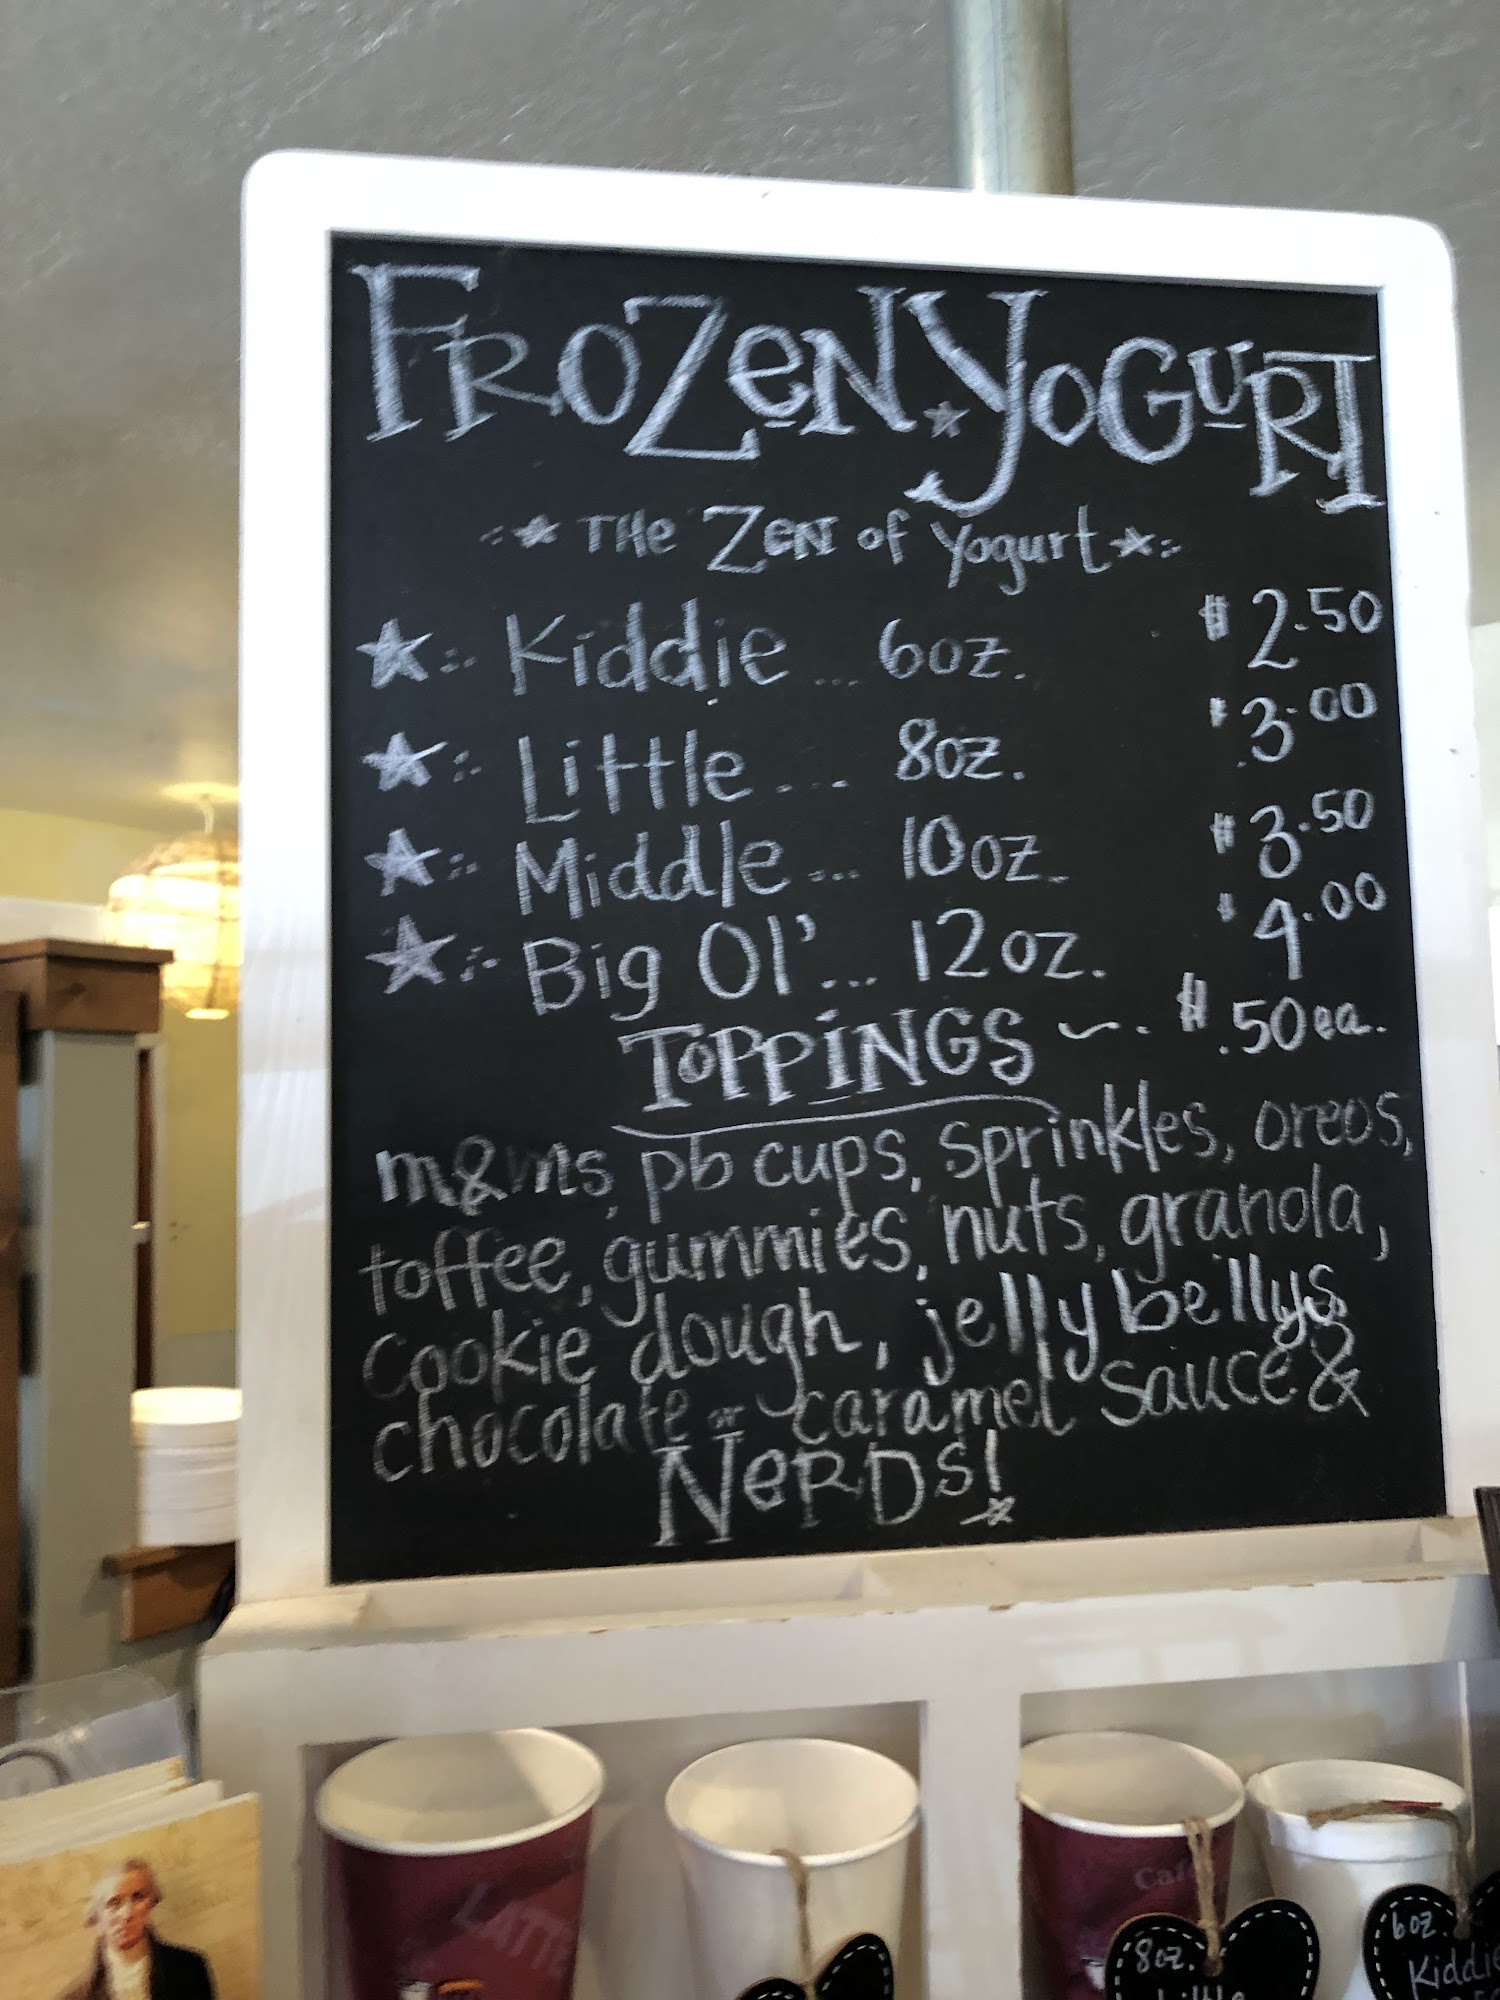 FROZEN YOGURT
THE ZEN OF Yogurt
Kiddie ... 6oz. $2.50
Little ... 8oz. $3.00
Middle ... 10oz. $3.50
Big Ol' ... 12oz. $4.00
TOPPINGS ~. $.50 ea.
m&ms, pb cups, sprinkles, oreos,
toffee, gummies, nuts, granola,
cookie dough, jelly bellys,
chocolate or caramel sauce &
NERDS!
LATTE
Café
8oz.
Little
6oz.
Kiddie